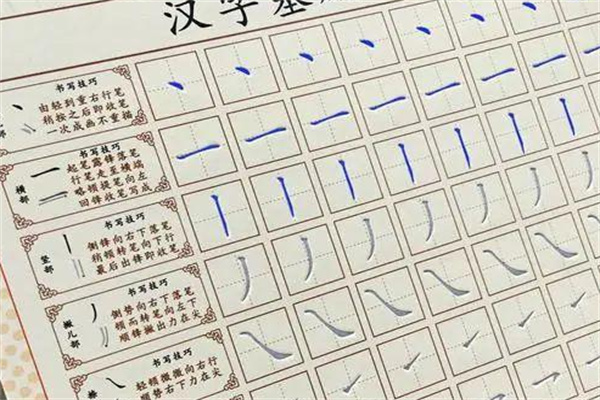 汉字基
书写技巧
由轻到重右行笔
稍按之后即收笔
一次成画不重描
部
书写技巧
起笔露锋落笔
行笔走至横端
略顿提笔向左
回锋收笔写成
横部
书写技巧
侧锋向右下落笔
稍顿转笔向下行
最后出锋即收笔
竖部
书写技巧
侧势向右下落笔
顿而转笔向左下
顺锋撇出力在尖
撇儿部
书写技巧
轻顿微微向右行
顺势右下力在尖